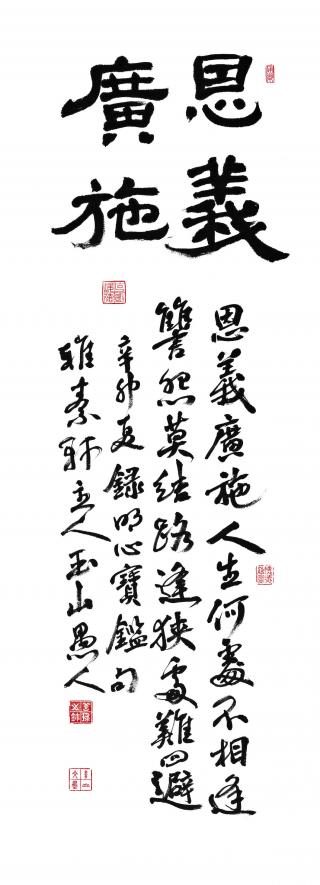 恩義
廣施
恩義廣施人生何處不相逢
讐怨莫結路逢狹處難回避
辛卯夏錄明心寶鑑句
雅素軒主人玉山愚人